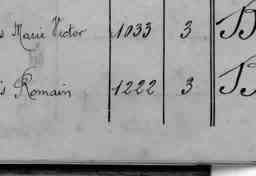 s Marie Victor 1033 3 B
is Romain 1222 3 B